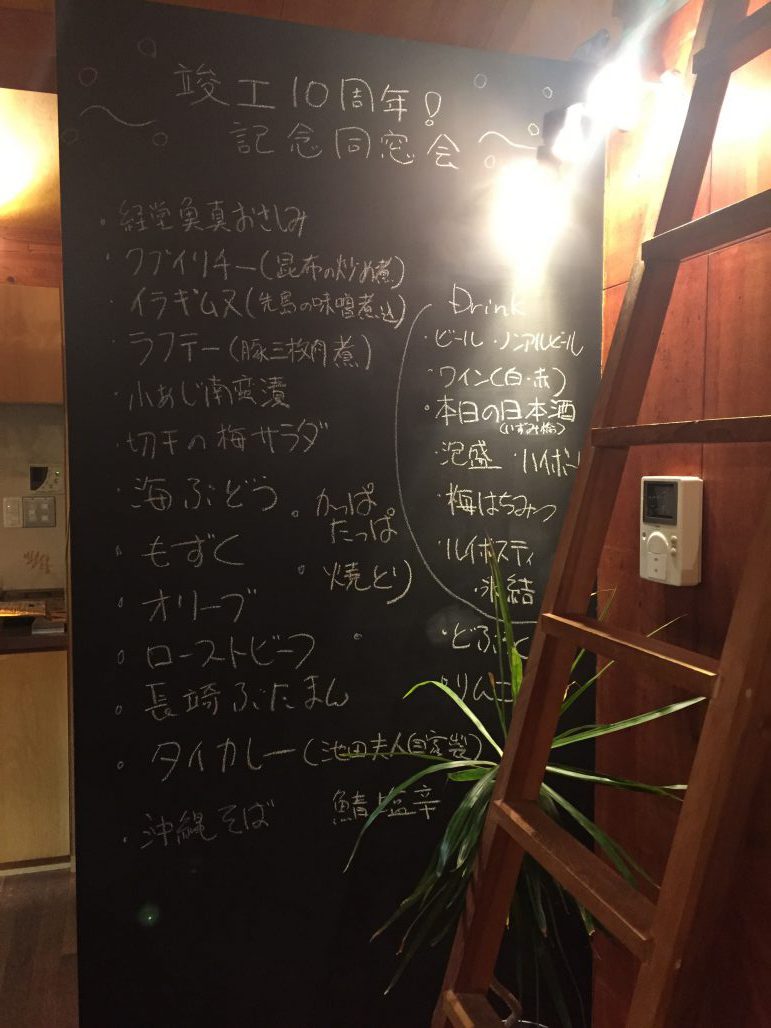 竣工10周年！
記念同窓会
・経堂魚真おさしみ
・クブイリチー(昆布の炒め煮)
・イラギムヌ(先島の味噌煮込)
・ラフテー(豚三枚肉煮)
・小あじ南蛮漬
・切干の梅サラダ
・海ぶどう
・もずく
・オリーブ
・ローストビーフ
・長崎ぶたまん
・タイカレー(池田夫人自家製)
・沖縄そば
鯖塩辛
・かっぱ
たっぱ
・焼とり
Drink
・ビール ・ノンアルビール
・ワイン(白・赤)
・本日の日本酒
(いずみ橋)
・泡盛 ・ハイボー
・梅はちみつ
・ルイボスティ
・氷結
・どぶ